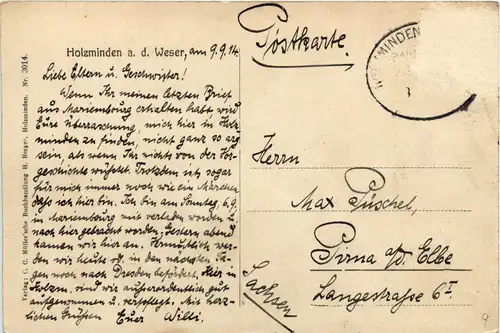 Holzminden a. d. Weser, am 9.9.14.
Liebe Eltern u. Geschwister!
Wenn Ihr meinen letzten Brief
aus Marienburg erhalten habt wird
Eure Überraschung, mich hier in Holz
minden zu finden, nicht ganz so arg
sein, als wenn Ihr nichts von der Vor-
geschichte wüßtet. Trotzdem ist sogar
für mich immer noch wie ein Märchen
daß ich hier bin. Ich bin am Sonntag, 6.9.
in Marienburg mit verladen worden u.
nach hier gebracht worden, gestern abend
kamen wir hier an. Hermutlich wer-
den wir heute od. in den nächsten Ta-
gen noch nach Dresden befördert. Hier in
Holzm. sind wir außerordentlich gut
aufgenommen u. verpflegt. Mit herz-
lichen Grüßen Euer Willi.
Verlag: C. C. Müller'sche Buchhandlung H. Berger, Holzminden. Nr. 3014.
Postkarte.
HOLZMINDEN
Herrn
Max Püschel,
Pirna a/d. Elbe
Langestraße 6 I.
Sachsen
9